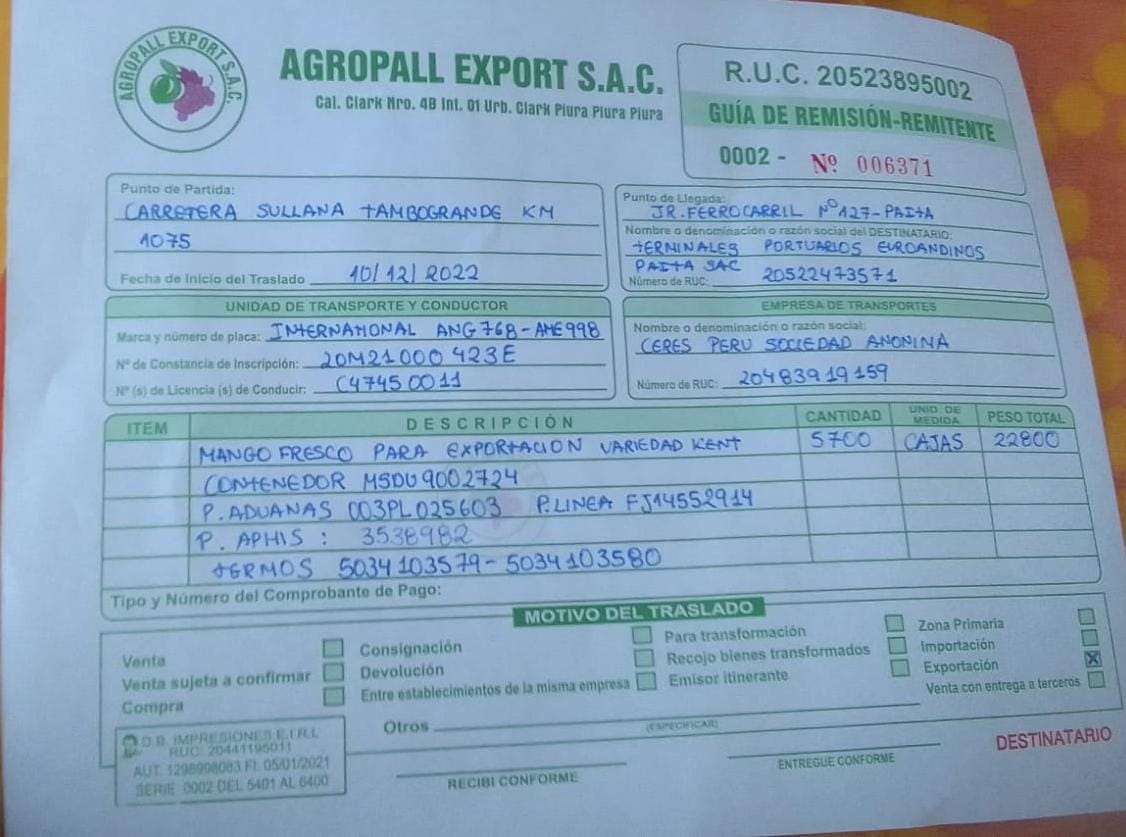 AGROPALL EXPORT S.A.C.
AGROPALL EXPORT S.A.C.
Cal. Clark Nro. 4B Int. 01 Urb. Clark Piura Piura Piura
R.U.C. 20523895002
GUÍA DE REMISIÓN-REMITENTE
0002 - Nº 006371
Punto de Partida:
CARRETERA SULLANA TAMBOGRANDE KM
1075
Fecha de Inicio del Traslado 10/12/2022
Punto de Llegada:
JR. FERROCARRIL Nº127-PAITA
Nombre o denominación o razón social del DESTINATARIO:
TERMINALES PORTUARIOS EUROANDINOS
PAITA SAC
Número de RUC: 20522473571
UNIDAD DE TRANSPORTE Y CONDUCTOR
Marca y número de placa: INTERNATIONAL ANG768-AME998
Nº de Constancia de Inscripción: 20M21000423E
Nº (s) de Licencia (s) de Conducir: C47450011
EMPRESA DE TRANSPORTES
Nombre o denominación o razón social:
CERES PERU SOCIEDAD ANONINA
Número de RUC: 20483919159
ITEM DESCRIPCIÓN CANTIDAD UNID. DE MEDIDA PESO TOTAL
MANGO FRESCO PARA EXPORTACION VARIEDAD KENT 5700 CAJAS 22800
CONTENEDOR MSDU9002724
P. ADUANAS 003PL025603 P.LINEA FJ14552914
P. APHIS : 3538982
TERMOS 5034103579-5034103580
Tipo y Número del Comprobante de Pago:
MOTIVO DEL TRASLADO
Venta
Venta sujeta a confirmar
Compra
Consignación
Devolución
Entre establecimientos de la misma empresa
Para transformación
Recojo bienes transformados
Emisor itinerante
Zona Primaria
Importación
Exportación X
Venta con entrega a terceros
Otros
(ESPECIFICAR)
D.B. IMPRESIONES E.I.R.L
RUC: 20441195011
AUT. 1298998083 FI. 05/01/2021
SERIE 0002 DEL 5401 AL 6400
RECIBI CONFORME
ENTREGUE CONFORME
DESTINATARIO